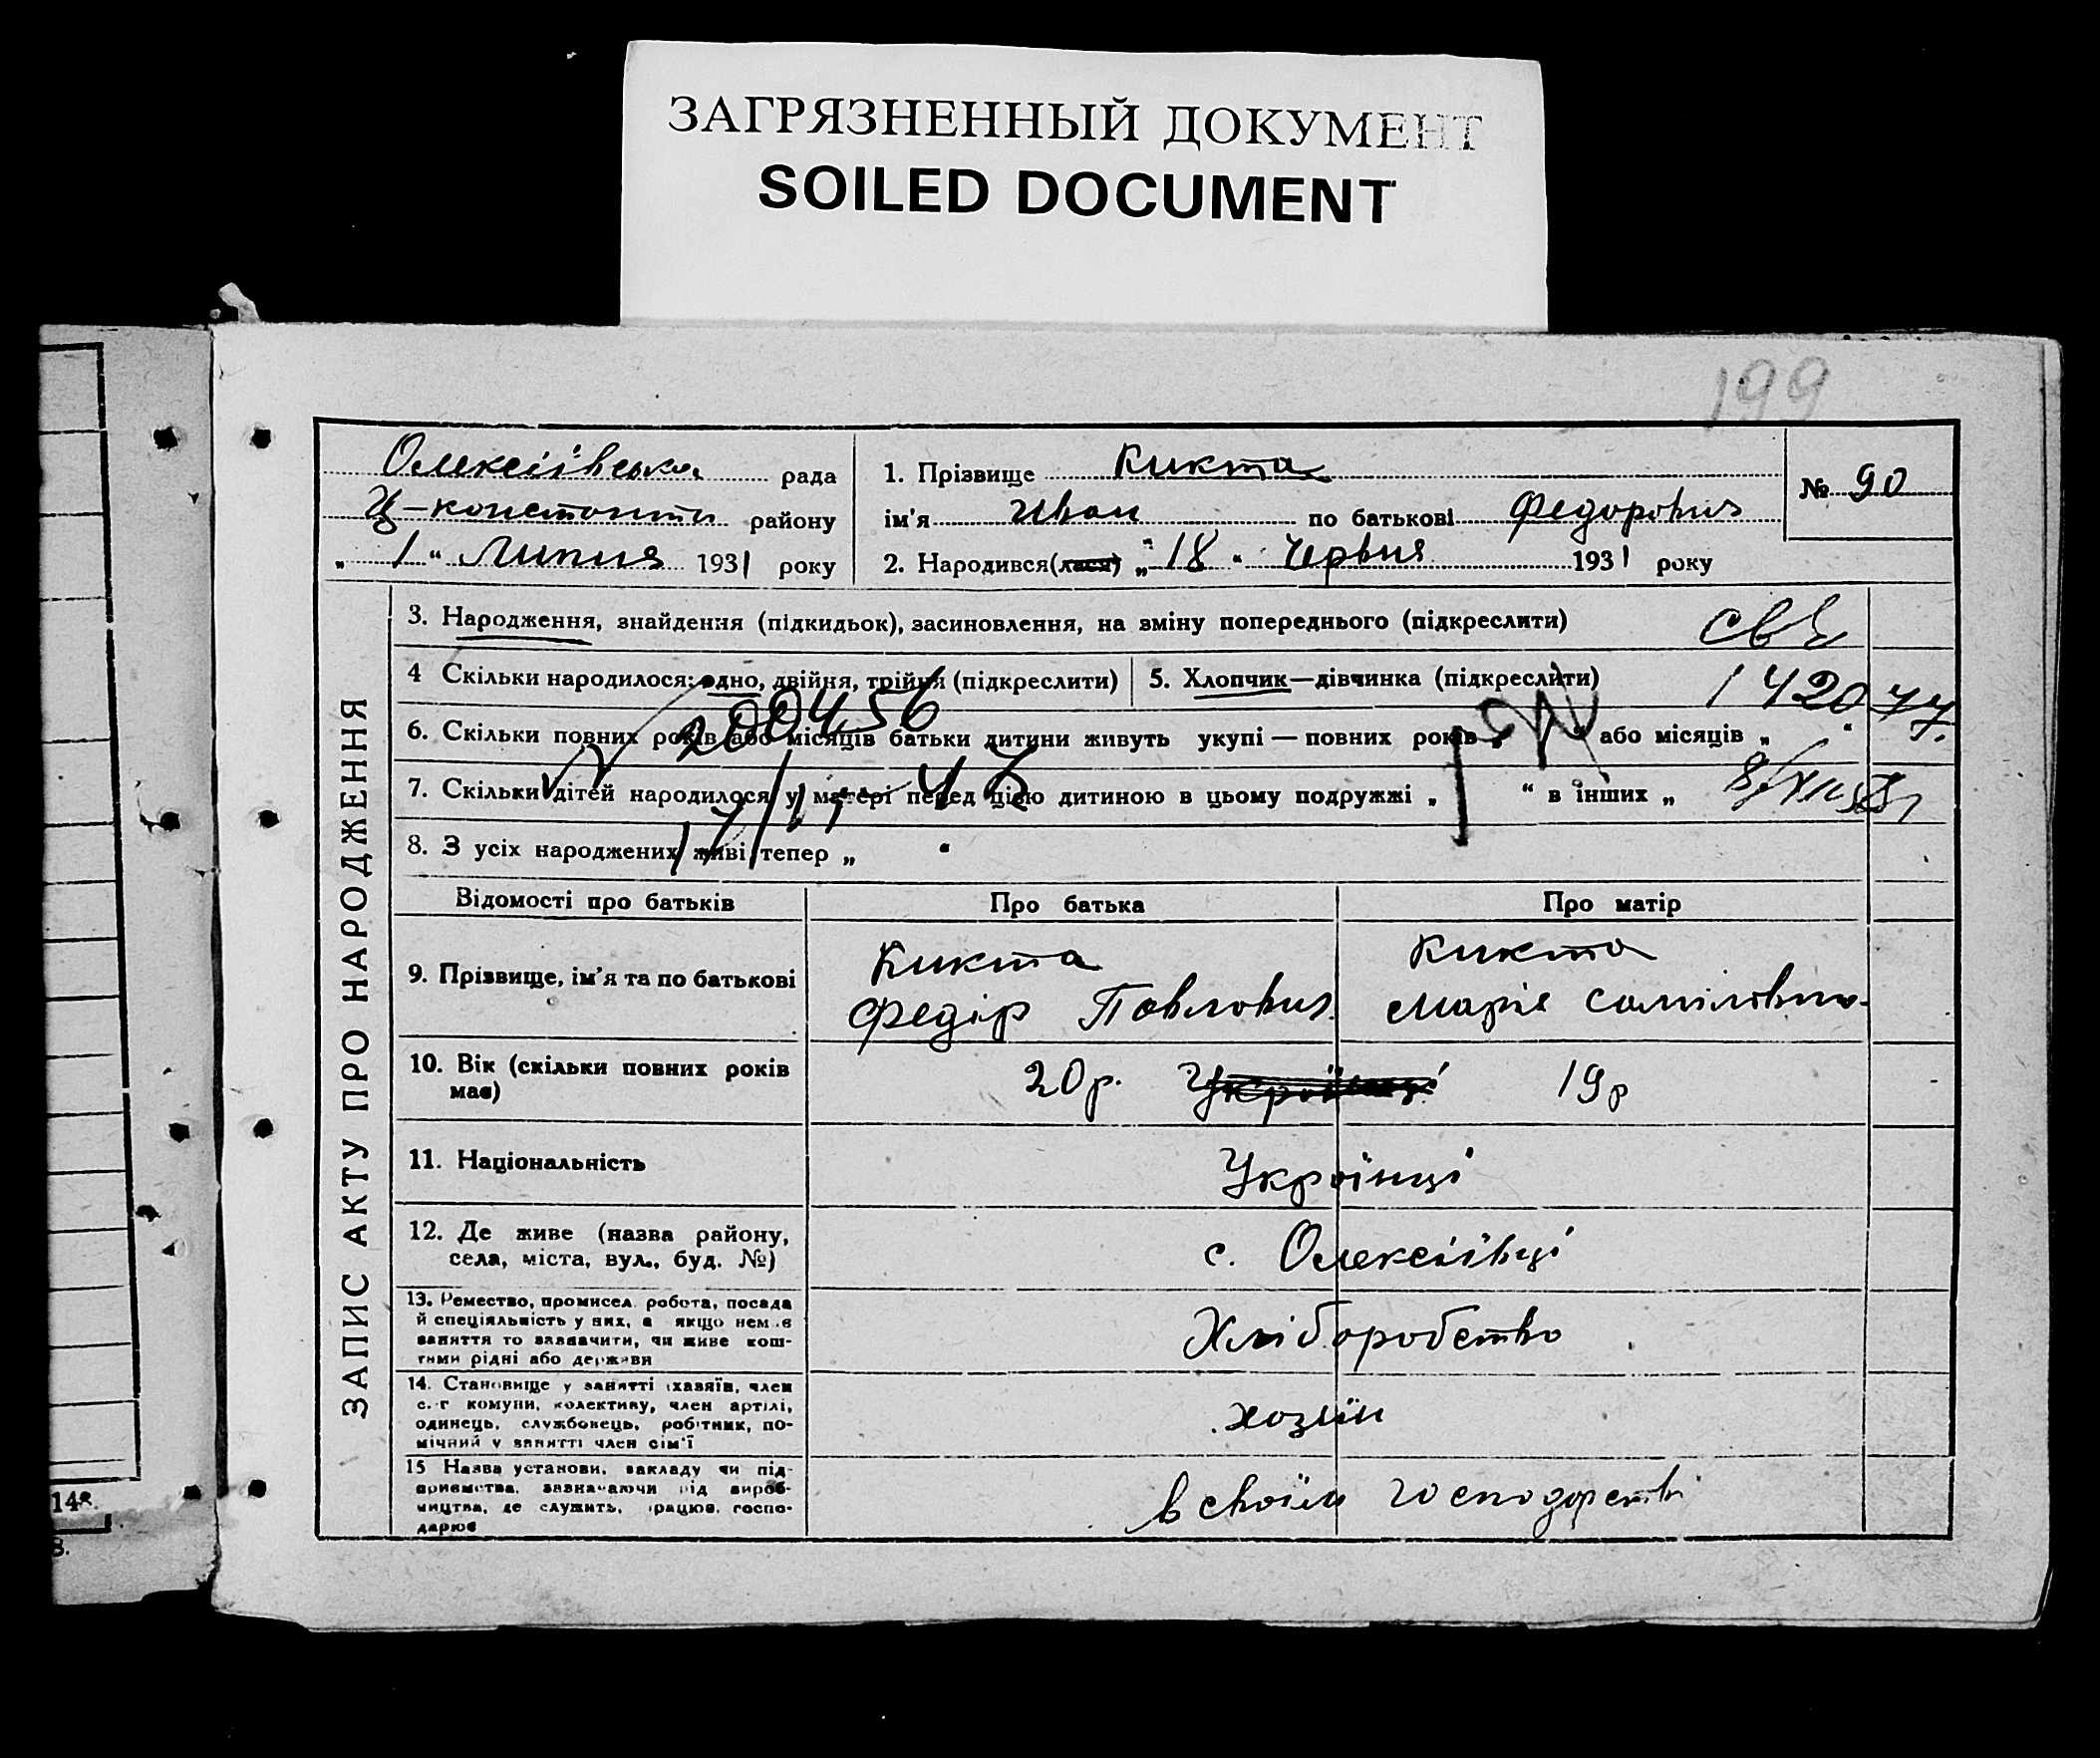 ЗАГРЯЗНЕННЫЙ ДОКУМЕНТ
SOILED DOCUMENT
199
Олексіївська рада
Ц-константи району
„ 1 “ Липня 1931 року
1. Прізвище Кикта
ім'я Иван по батькові Федорович
2. Народився(лася) „ 18 “ Червня 1931 року
№ 90
ЗАПИС АКТУ ПРО НАРОДЖЕННЯ
3. Народження, знайдення (підкидьок), засиновлення, на зміну попереднього (підкреслити)
4 Скільки народилося: одно, двійня, трійня (підкреслити)
5. Хлопчик—дівчинка (підкреслити)
142077
200456
6. Скільки повних років або місяців батьки дитини живуть укупі — повних років „ “ або місяців „ “
7. Скільки дітей народилося у матері перед цією дитиною в цьому подружжі „ “ в інших „
8. З усіх народжених живі тепер „ “
Відомості про батьків Про батька Про матір
9. Прізвище, ім'я та по батькові
Кикта
Федір Павлович
Кикта
Марія Самілівна
10. Вік (скільки повних років
має)
20р. Українці 19р
11. Національність
Українці
12. Де живе (назва району,
села, міста, вул., буд. №)
с. Олексіївці
13. Ремество, промисел робота, посада
й спеціяльність у них, а якщо нема
заняття то зазначити, чи живе кош-
тами рідні або держави
Хліборобство
14. Становище у занятті хазяїн, член
с.-г комуни, колективу, член артілі,
одинець, службовець, робітник, по-
мічний у занятті член сім'ї
хозяїн
15 Назва установи, закладу чи під-
приємства, зазначаючи рід вироб-
ництва, де служить, працює, госпо-
дарює
в своїм господарстві
148.
8.